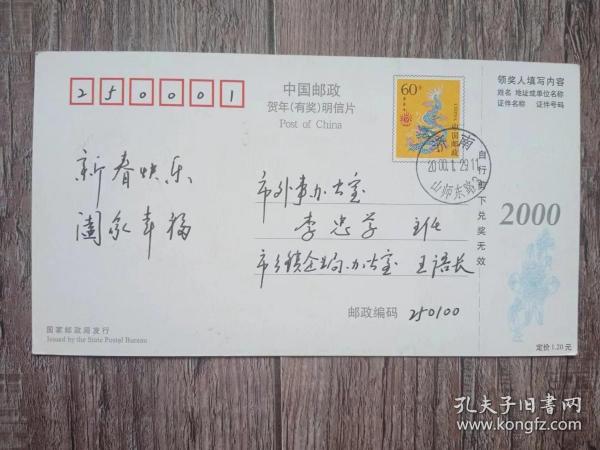 250001
中国邮政
贺年(有奖)明信片
Post of China
60分
中国邮政
CHINA
济南
2000.1.29.11
山师东路2
领奖人填写内容
姓名 地址或单位名称
证件名称 证件号码
自行剪下兑奖无效
2000
新春快乐
阖家幸福
市外事办公室
李忠 主任
市乡镇企业局办公室 王语长
邮政编码 250100
国家邮政局发行
Issued by the State Postal Bureau
定价1.20元
孔夫子旧书网
www.kongfz.com